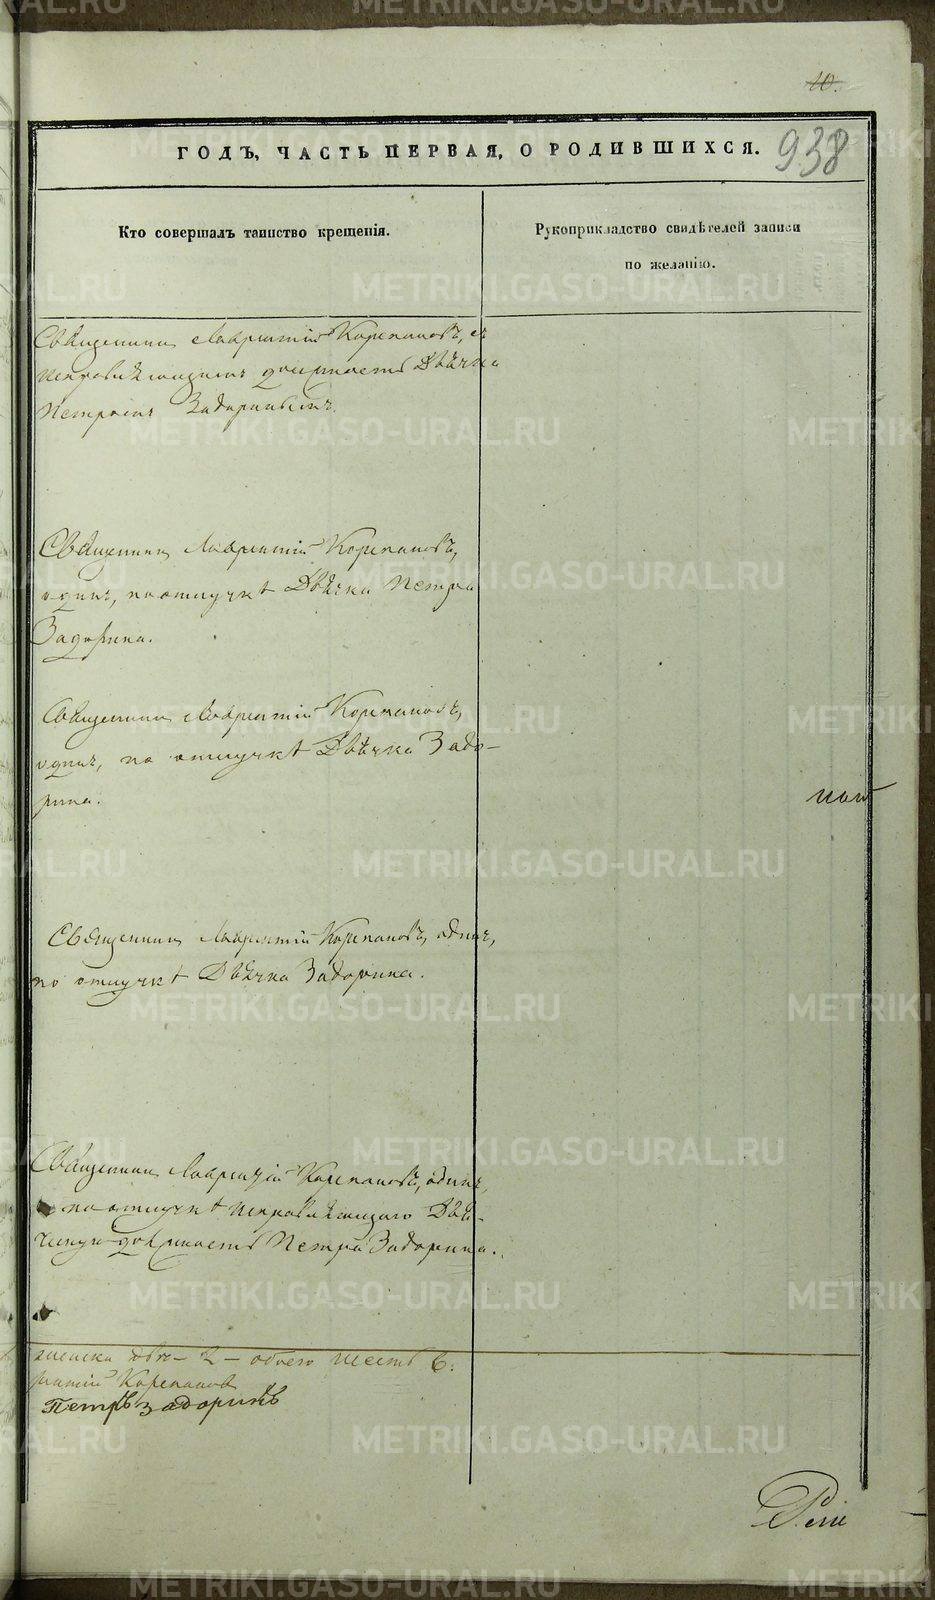 10.
938
ГОДЪ, ЧАСТЬ ПЕРВАЯ, О РОДИВШИХСЯ.
Кто совершалъ таинство крещенія.
Рукоприкладство свидѣтелей записи
по желанію.
Священникъ Лаврентій Корепановъ, съ
исправляющимъ должность Дьячка
Петромъ Задоринымъ.
Священникъ Лаврентій Корепановъ,
одинъ, по отлучкѣ Дьячка Петра
Задорина.
Священникъ Лаврентій Корепановъ,
одинъ, по отлучкѣ Дьячка Задо-
рина.
Священникъ Лаврентій Корепановъ, одинъ,
по отлучкѣ Дьячка Задорина.
Священникъ Лаврентій Корепановъ, одинъ,
по отлучкѣ исправляющаго Дья-
ческую должность Петра Задорина.
женска двѣ - 2 - обоего шесть 6.
рентій Корепановъ
Петръ Задоринъ
METRIKI.GASO-URAL.RU